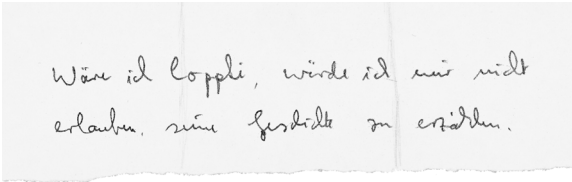 Wäre ich Coppki, würde ich mir nicht
erlauben, seine Geschichte zu erzählen.